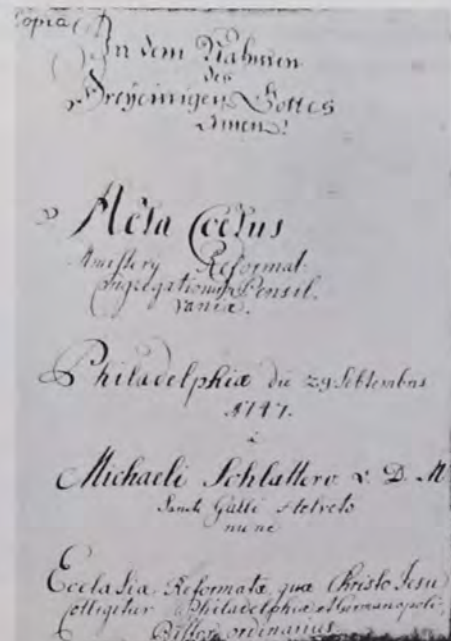 Copia
In dem Nahmen
des
Dreyeinigen Gottes
Amen!
Acta Coetus
Ministery Reformat.
Congregationum Pensil.
vaniæ.
Philadelphiæ die 29 Septembris
1747.
à
Michaeli Schlattero V. D. M
Sancti Galli Helveto
nunc
Ecclesiæ Reformatæ quæ Christo Jesu
Colligitur Philadelphiæ & Germanopoli.
ordinarius